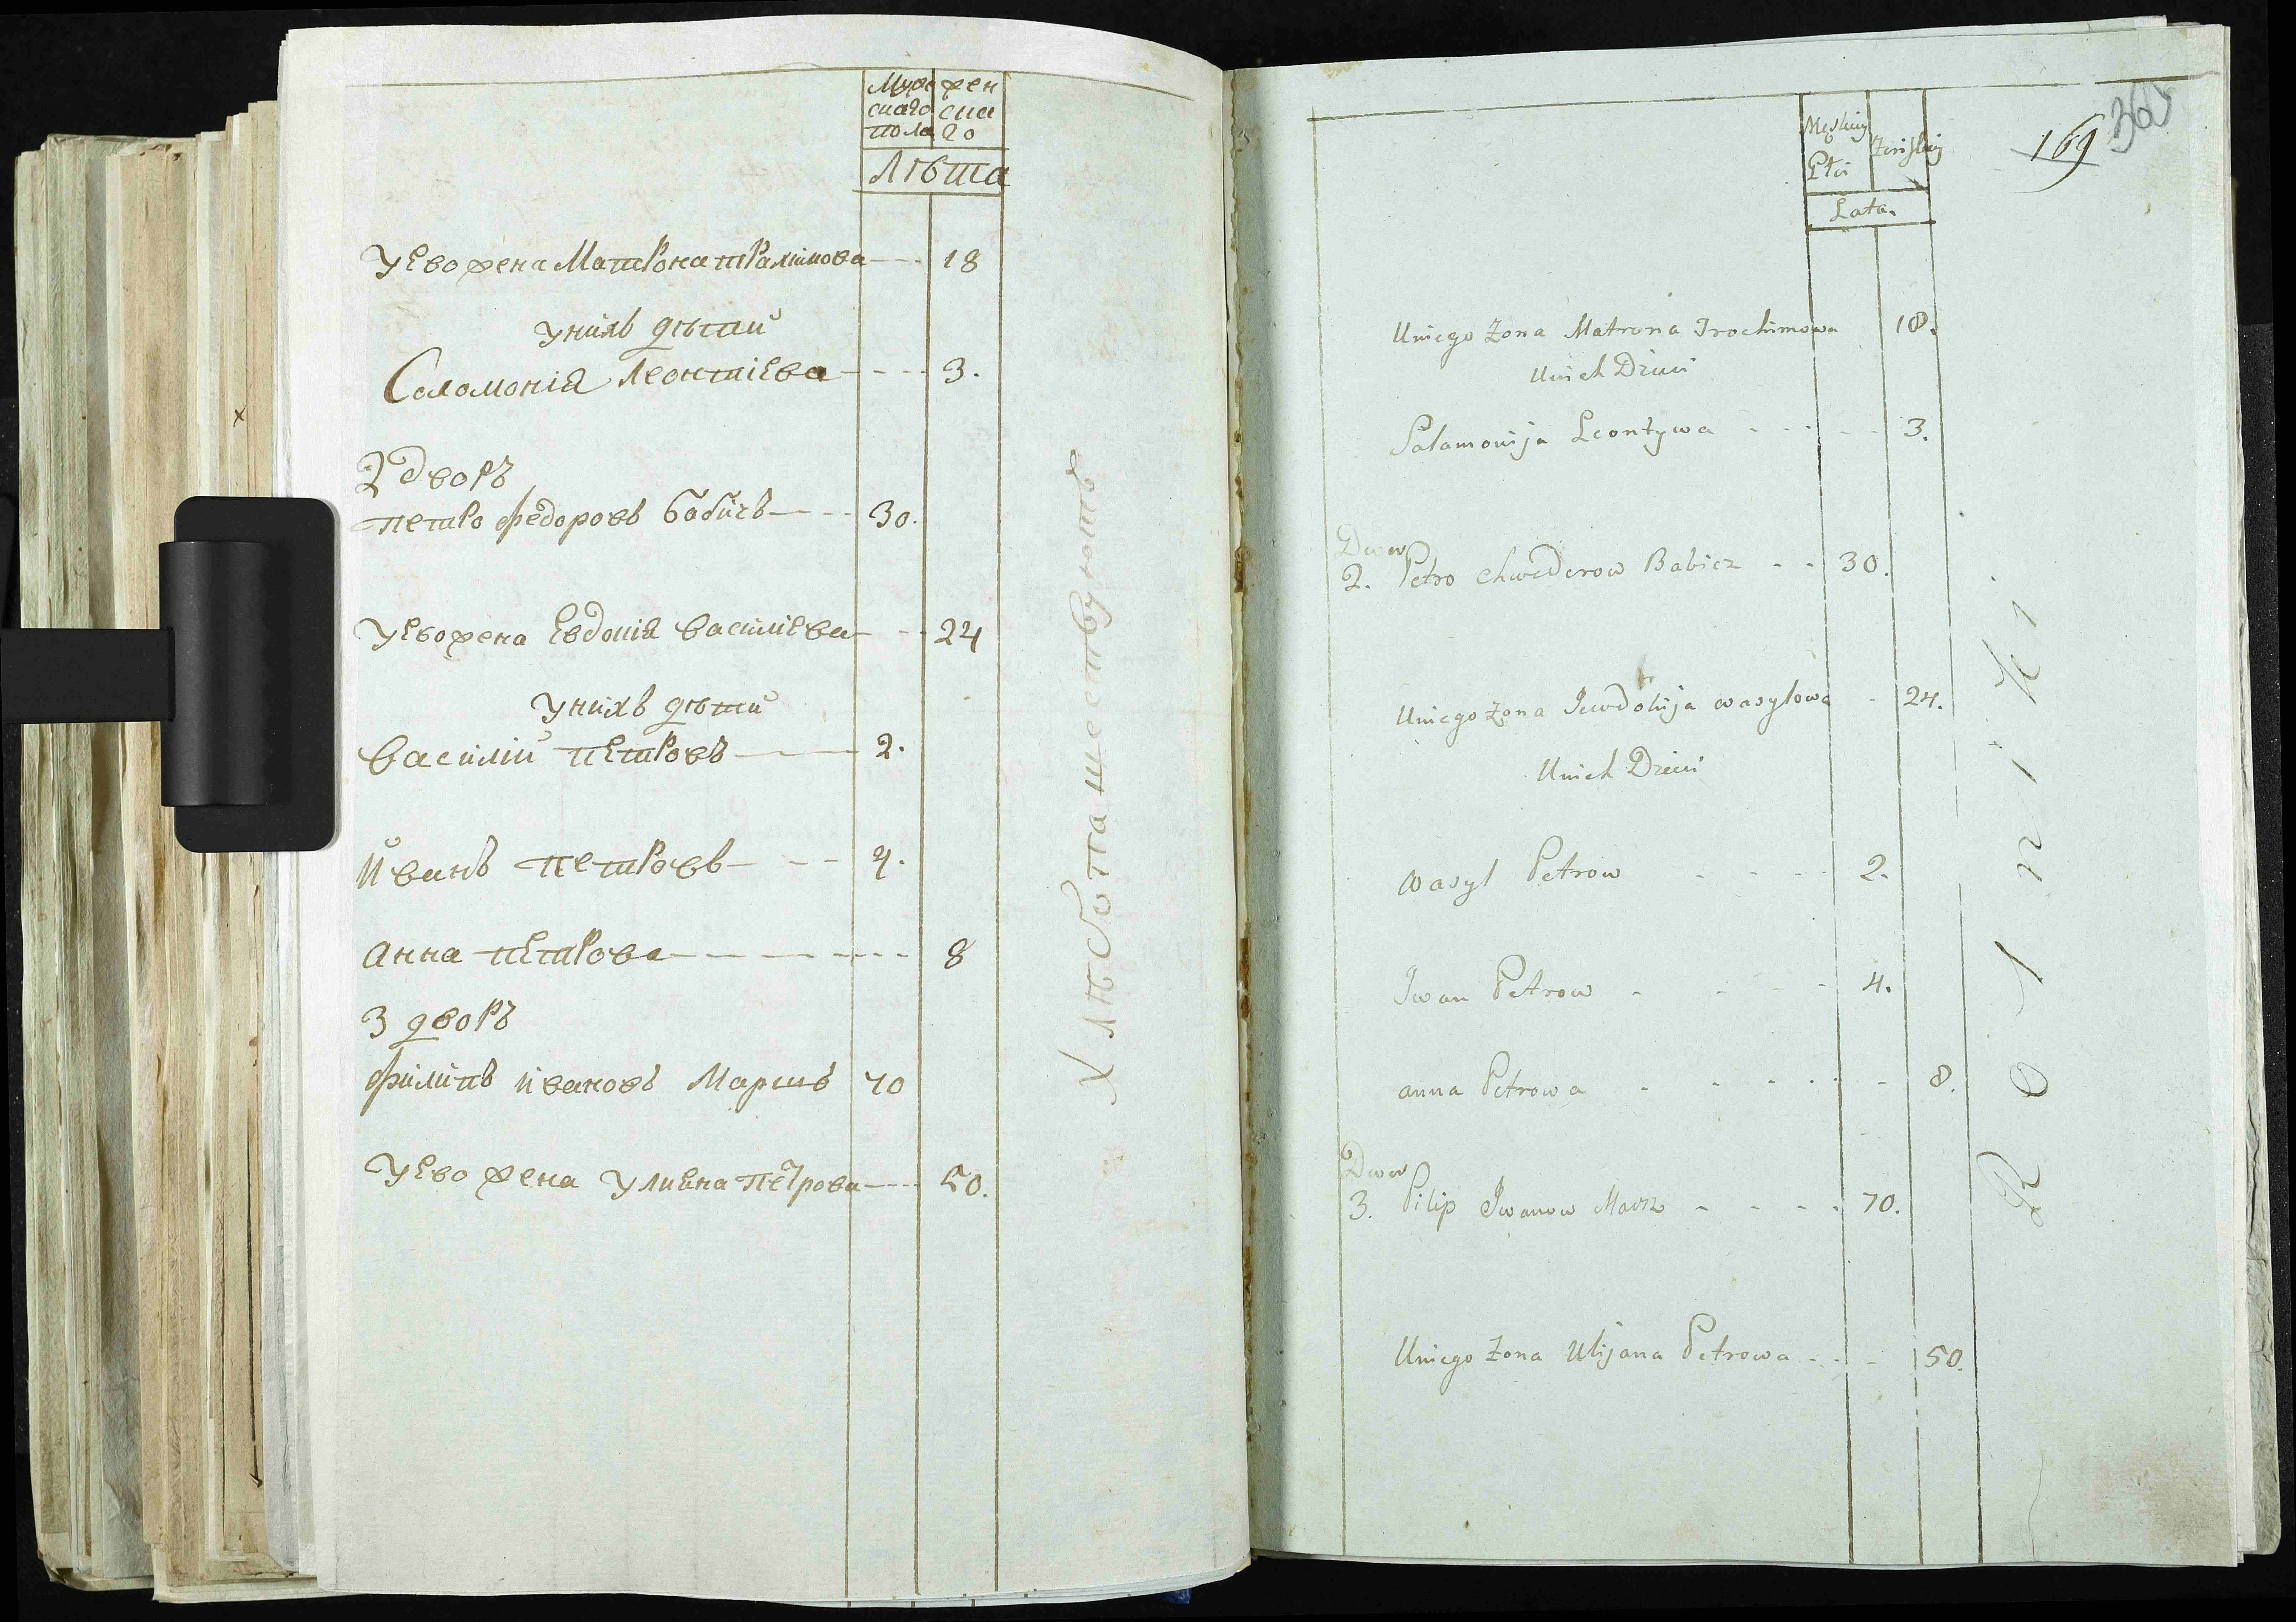 Муже жен
скаго ска
пола го
Лѣта
У Его жена Матрона трахимова 18
У нихъ дѣти
Соломонія Леонтіева 3.
2 дворъ
петро федоровъ бабичъ 30.
У Его жена Евдокія василіева 24
У нихъ дѣти
василій петровъ 2.
Иванъ петровъ 4.
анна петрова 8
3 дворъ
филипъ ивановъ Маршъ 70
У Его жена Улияна петрова 50.
Хлѣбопашествуютъ
365
169
Męskiey Żeńskiey
Płci
Lata.
Uniego Zona Matrona Trochimowa 18.
Unich Dzieci
Salamonija Leontywa 3.
Dwor
2. Petro Chwederow Babicz 30.
Uniego Zona Jewdokija wasylowa 24.
Unich Dzieci
Wasyl Petrow 2.
Iwan Petrow 4.
anna Petrowa 8.
Dwor
3. Pilip Iwanow Marsz 70.
Uniego Zona Ulijana Petrowa 50.
Rolniki